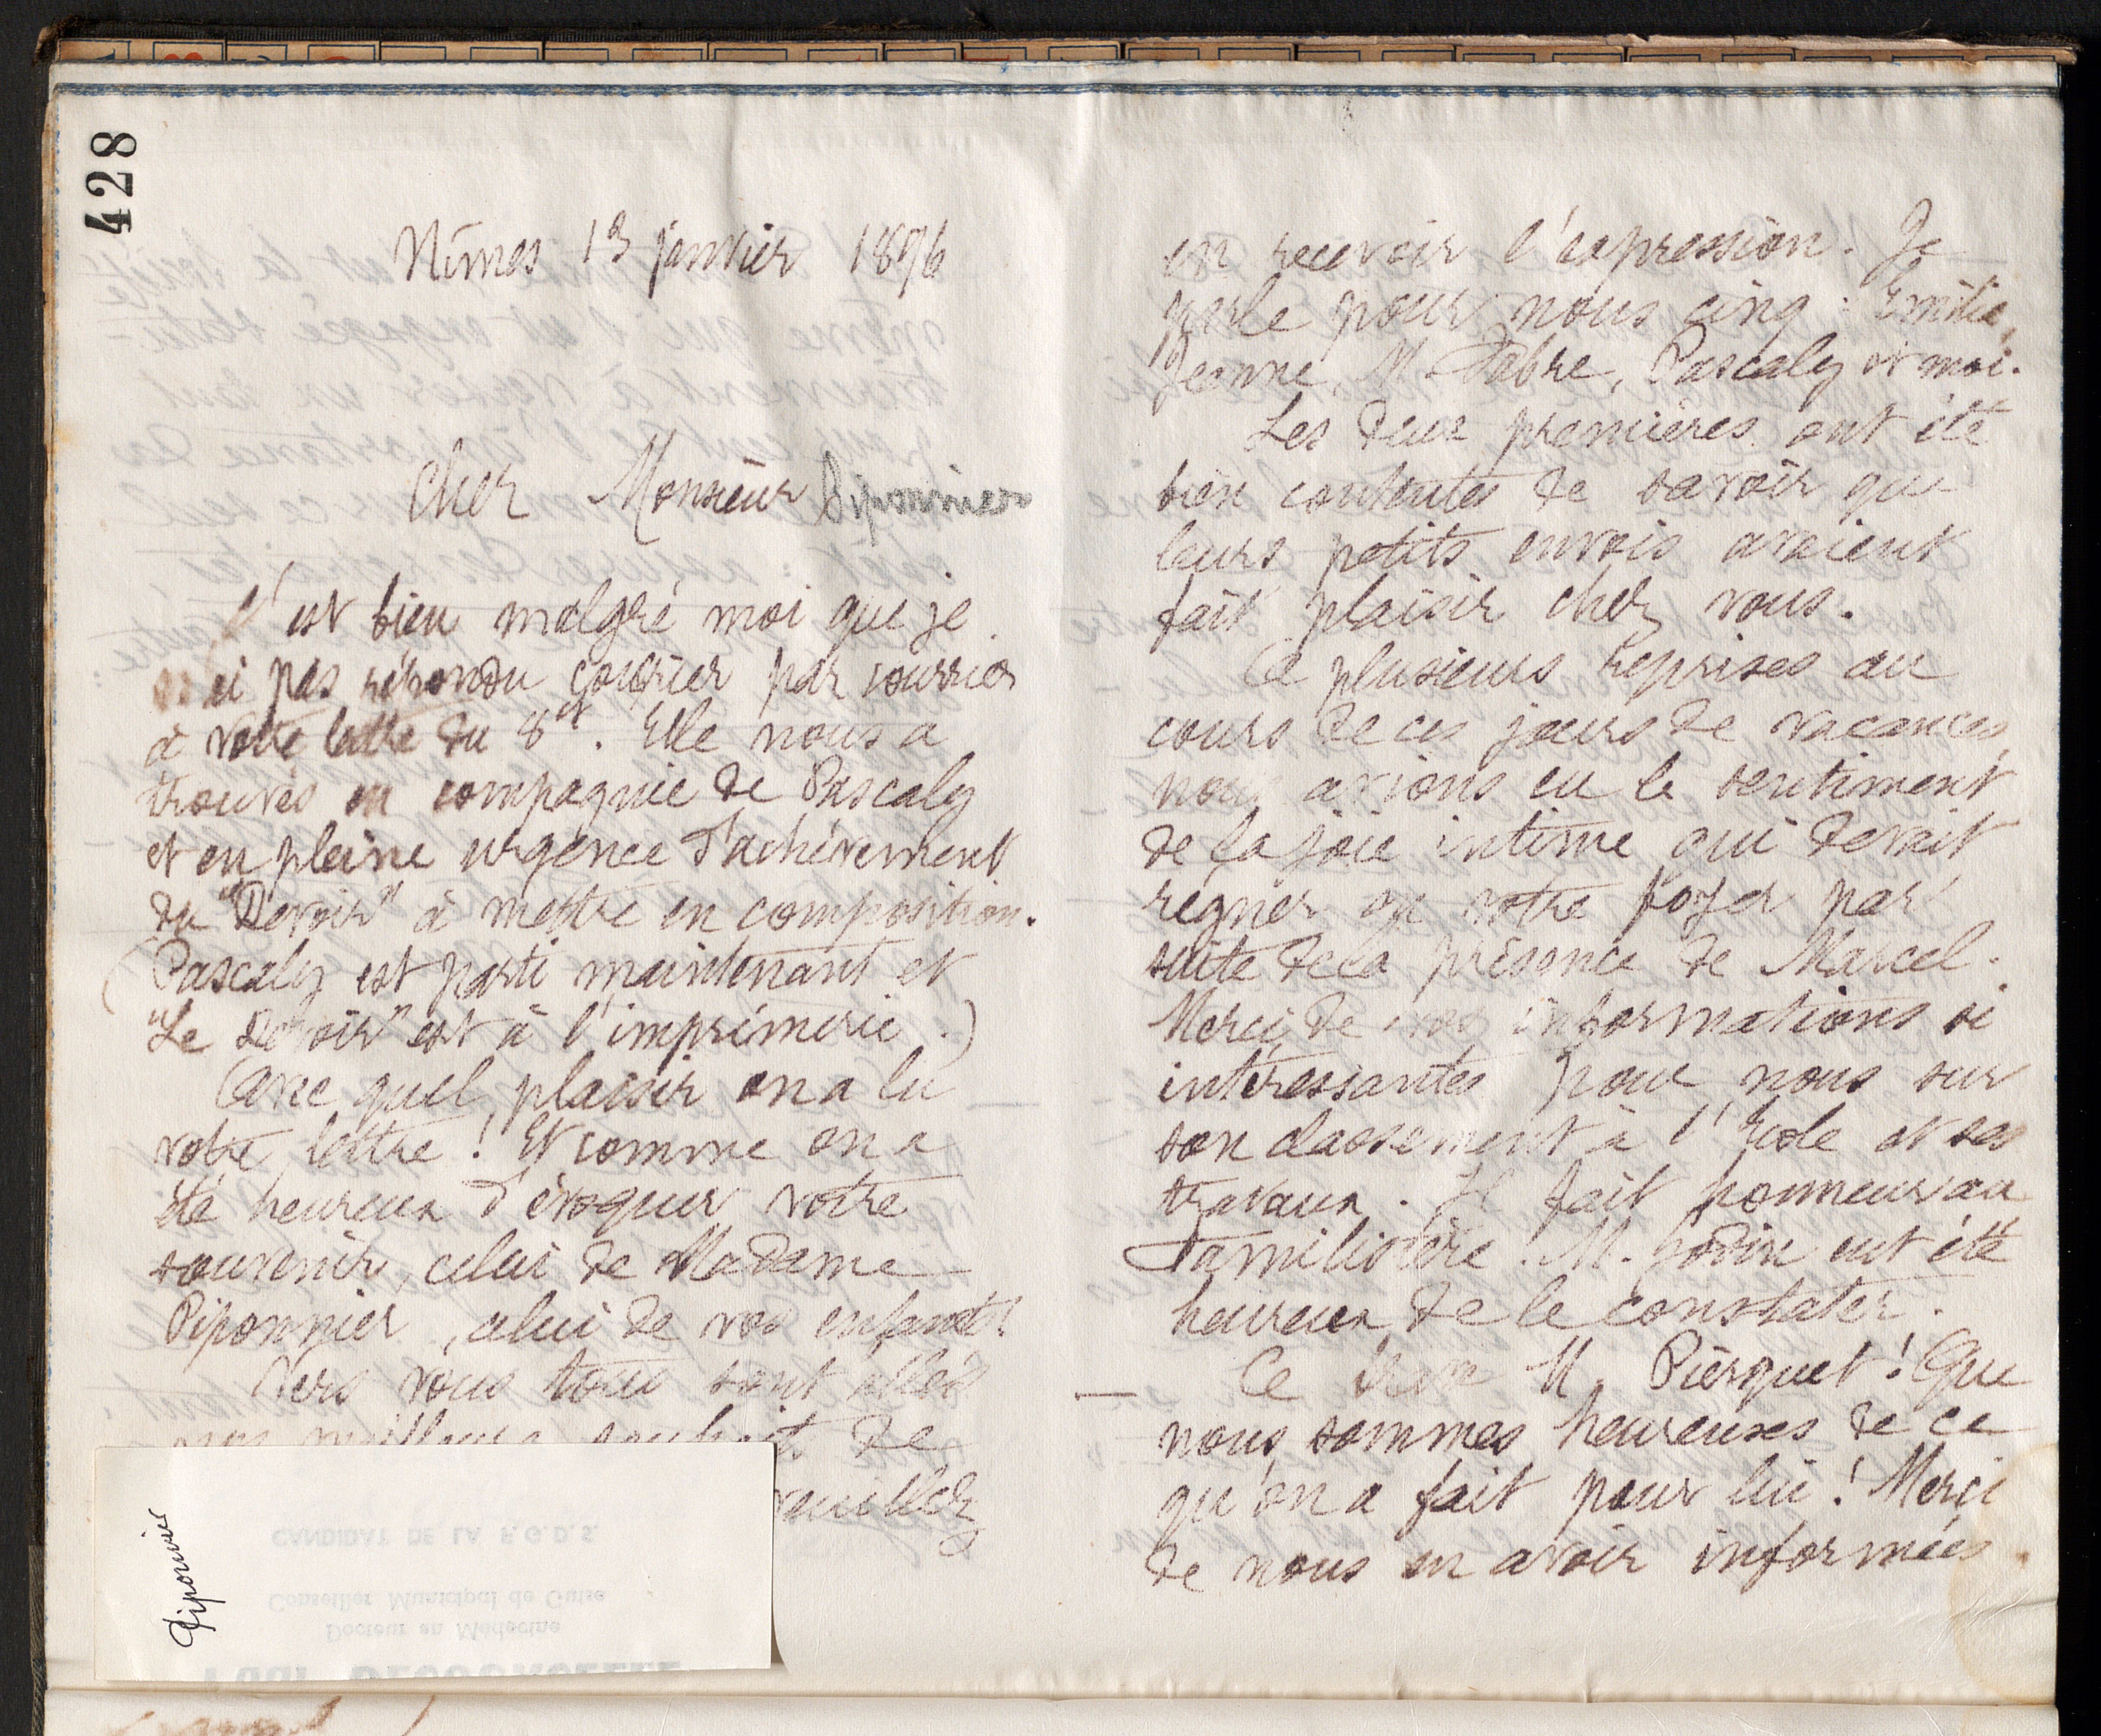 428
Nîmes 13 janvier 1896
Cher Monsieur Piponnier
C'est bien malgré moi que je
n'ai pas répondu courrier par courrier
à votre lettre du 8 ct. Elle nous a
trouvés en compagnie de Pascaly
et en pleine urgence d'achèvement
du "Devoir" à mettre en composition.
(Pascaly est parti maintenant et
"Le Devoir" est à l'imprimerie.)
Avec quel plaisir on a lu
votre lettre ! Et comme on a
été heureux d'évoquer votre
souvenir, celui de Madame
Piponnier, celui de vos enfants !
Vers vous tous sont allés
nos meilleurs souhaits de
veuillez
en recevoir l'expression. Je
parle pour nous cinq : Emilie,
Jeanne, M. Fabre, Pascaly et moi.
Les deux premières ont été
bien contentes de savoir que
leurs petits envois avaient
fait plaisir chez vous.
A plusieurs reprises au
cours de ces jours de vacances,
nous avions eu le sentiment
de la joie intime qui devait
régner en votre foyer par
suite de la présence de Marcel.
Merci de vos informations si
intéressantes pour nous sur
son classement à l'Ecole et ses
travaux. Il fait honneur au
Familistère. M. Godin eut été
heureux de le constater.
Ce M. Pierquet ! Que
nous sommes heureuses de ce
qu'on a fait pour lui ! Merci
de nous en avoir informées.
Piponnier
CANDIDAT DE LA F.G.D.S.
Conseiller Municipal de Guise
Docteur en Médecine